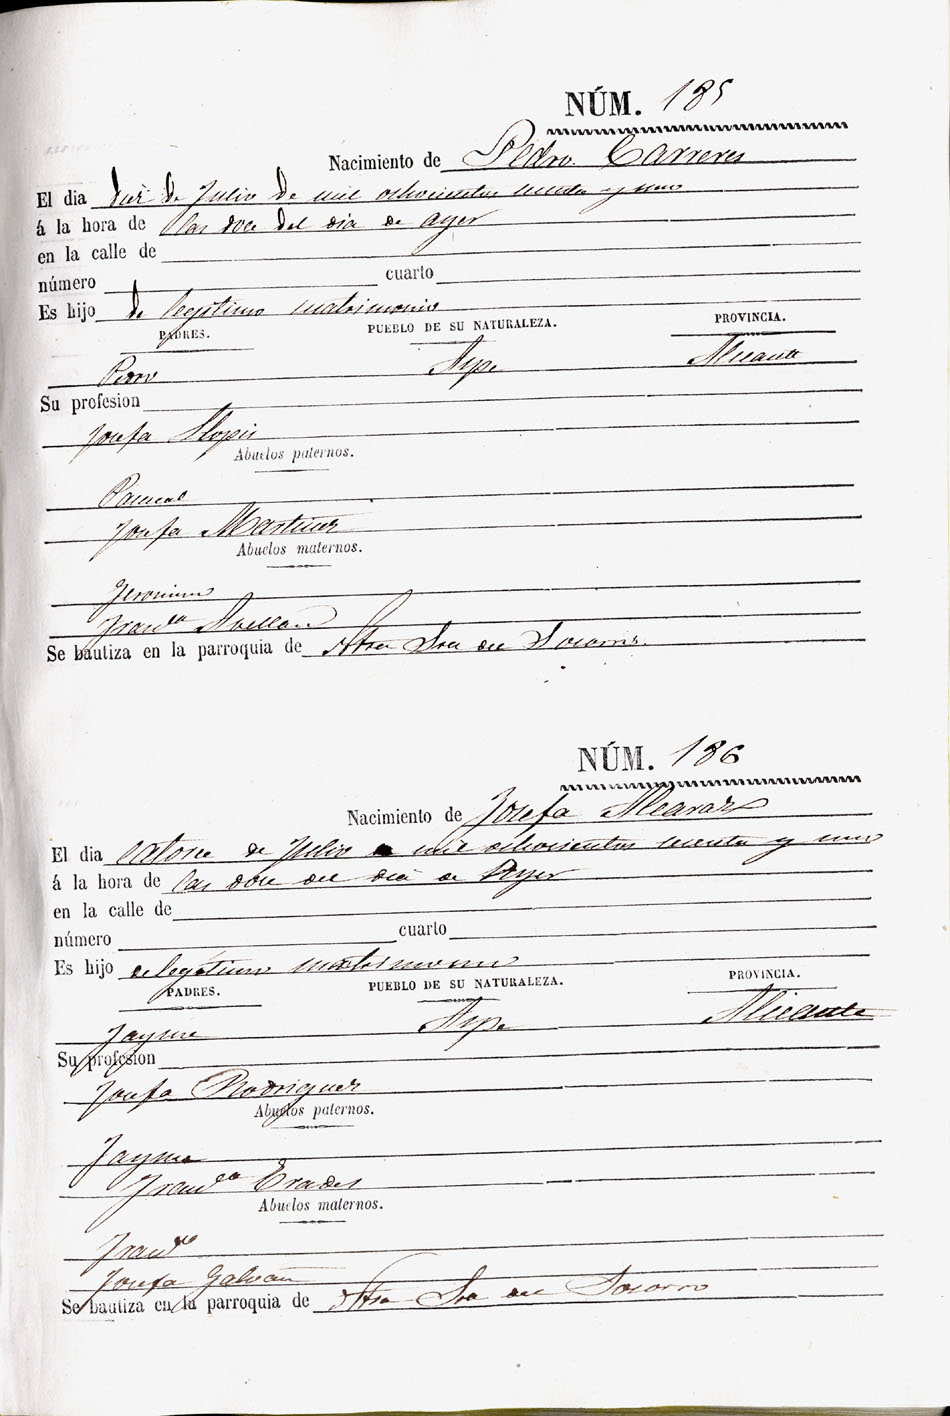 NÚM. 185
Nacimiento de Pedro Carreres
El dia diez de Julio de mil ochocientos sesenta y uno
á la hora de las doce del dia de ayer
en la calle de
número cuarto
Es hijo de legitimo matrimonio
PADRES. PUEBLO DE SU NATURALEZA. PROVINCIA.
Pedro Aspe Alicante
Su profesion
Josefa Llopis
Abuelos paternos.
Pascual
Josefa Martinez
Abuelos maternos.
Jeronimo
Franca Avellan
Se bautiza en la parroquia de Ntra Sra del Socorro.
NÚM. 186
Nacimiento de Josefa Alcaraz
El dia catorce de Julio de mil ochocientos sesenta y uno
á la hora de las doce del dia de Ayer
en la calle de
número cuarto
Es hijo de legitimo matrimonio
PADRES. PUEBLO DE SU NATURALEZA. PROVINCIA.
Jayme Aspe Alicante
Su profesion
Josefa Rodriguez
Abuelos paternos.
Jayme
Franca Erades
Abuelos maternos.
Franco
Josefa Galvañ
Se bautiza en la parroquia de Ntra Sra del Socorro